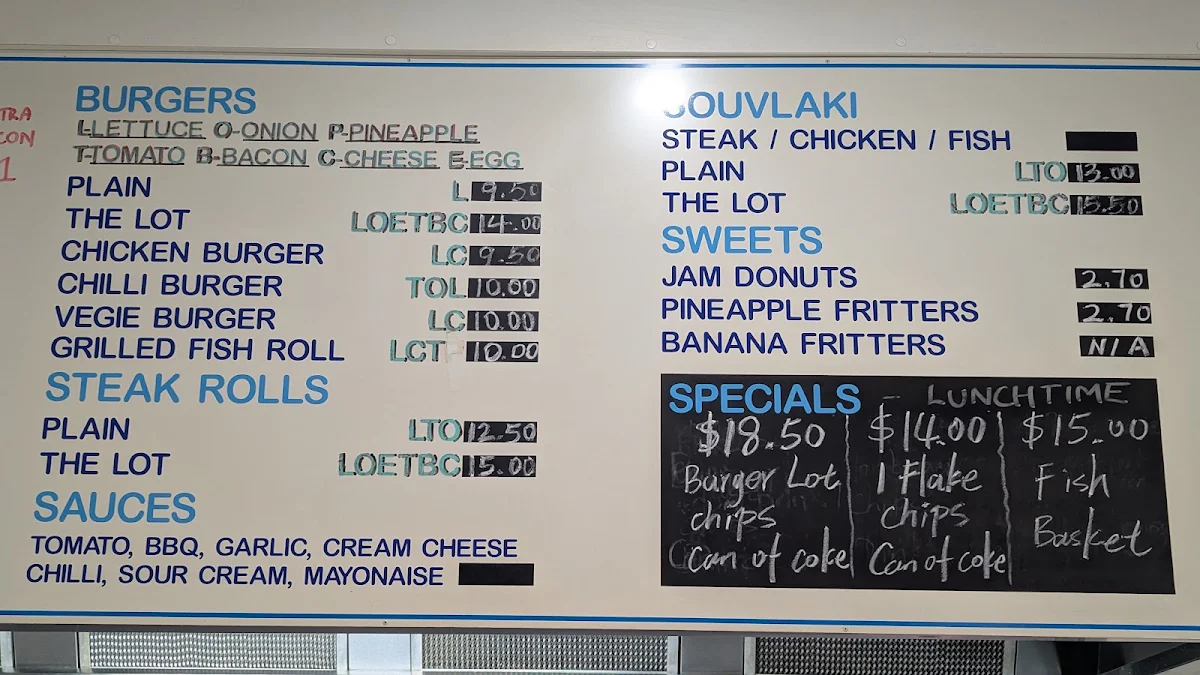 BURGERS
L-LETTUCE O-ONION P-PINEAPPLE
T-TOMATO B-BACON C-CHEESE E-EGG
PLAIN L 9.50
THE LOT LOETBC 14.00
CHICKEN BURGER LC 9.50
CHILLI BURGER TOL 10.00
VEGIE BURGER LC 10.00
GRILLED FISH ROLL LCT 10.00
STEAK ROLLS
PLAIN LTO 12.50
THE LOT LOETBC 15.00
SAUCES
TOMATO, BBQ, GARLIC, CREAM CHEESE
CHILLI, SOUR CREAM, MAYONAISE
SOUVLAKI
STEAK / CHICKEN / FISH
PLAIN LTO 13.00
THE LOT LOETBC 15.50
SWEETS
JAM DONUTS 2.70
PINEAPPLE FRITTERS 2.70
BANANA FRITTERS N/A
SPECIALS - LUNCHTIME
$18.50
Burger Lot
chips
Can of coke
$14.00
1 Flake
chips
Can of coke
$15.00
Fish
Basket